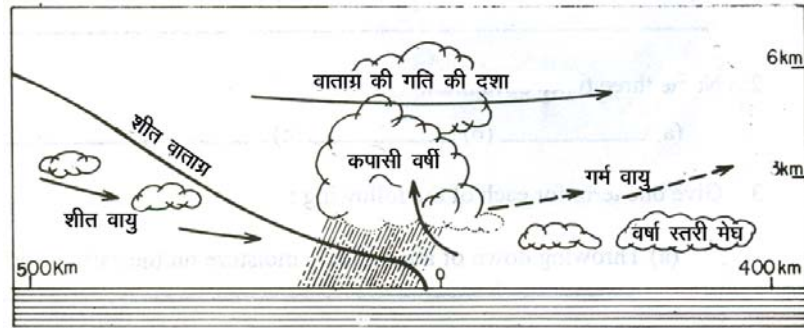 6km
वाताग्र की गति की दशा
शीत वाताग्र
कपासी वर्षी
गर्म वायु
3km
शीत वायु
वर्षा स्तरी मेघ
500Km
0
400Km